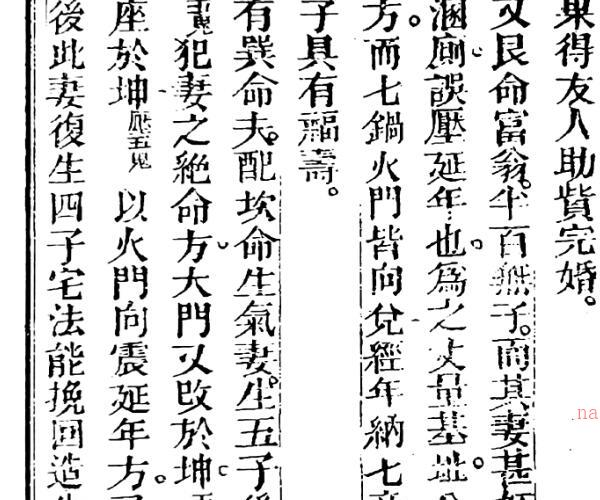 得友人助貲完婚。
又艮命富翁。半百無子。而其妻甚
溷廁誤壓延年也。爲之丈量基址。
方而七鍋火門皆向兌經年納七
子具有福壽。
有巽命夫。配坎命生氣妻。生五子後
鬼犯妻之絶命方大門又改於坤
座於坤壓五鬼以火門向震延年方。
後此妻復生四子宅法能挽回造
.na